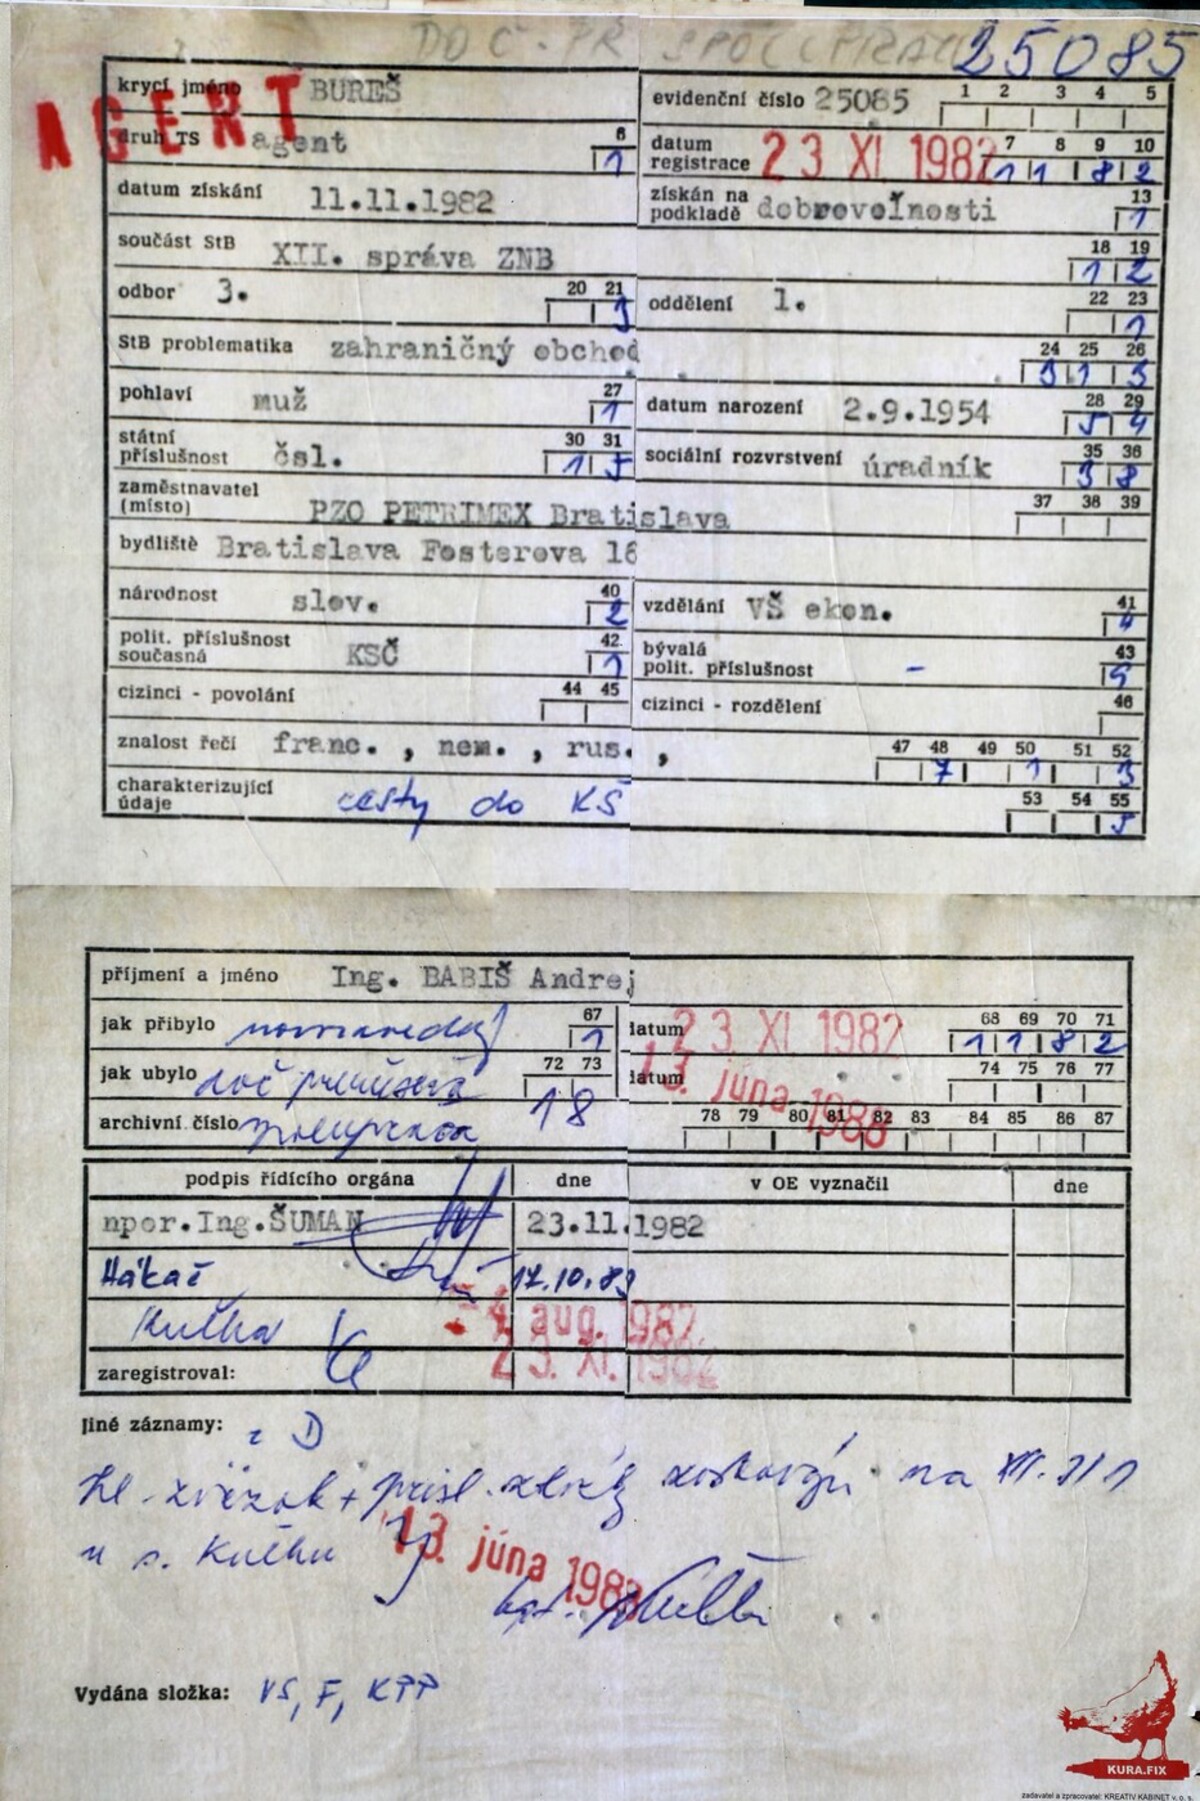 DOČ. PR SPOLUPRÁCU 25085
krycí jméno BUREŠ evidenční číslo 25085 1 2 3 4 5
AGENT
druh TS agent 6 1 datum registrace 23 XI. 1982 7 8 9 10 1 1 8 2
datum získání 11.11.1982 získán na podkladě dobrovoľnosti 13 1
součást StB XII. správa ZNB 18 19 1 2
odbor 3. 20 21 3 oddělení 1. 22 23 1
StB problematika zahraničný obchod 24 25 26 3 1 3
pohlaví muž 27 1 datum narození 2.9.1954 28 29 5 4
státní příslušnost čsl. 30 31 1 5 sociální rozvrstvení úradník 35 36 3 8
zaměstnavatel (místo) PZO PETRIMEX Bratislava 37 38 39
bydliště Bratislava Fosterova 16
národnost slov. 40 2 vzdělání VŠ ekon. 41 4
polit. příslušnost současná KSČ 42 1 bývalá polit. příslušnost - 43 9
cizinci - povolání 44 45 cizinci - rozdělení 46
znalost řečí franc. , nem. , rus. , 47 48 49 50 51 52 7 1 3
charakterizující údaje cesty do KŠ 53 54 55 5
příjmení a jméno Ing. BABIŠ Andrej
jak přibylo novozaved. 67 1 datum 23 XI. 1982 68 69 70 71 1 1 8 2
jak ubylo doč prerušená 72 73 18 datum 13. júna 1988 74 75 76 77
archivní číslo spolupráca 78 79 80 81 82 83 84 85 86 87
podpis řídícího orgána dne v OE vyznačil dne
npor.Ing.ŠUMAN 23.11.1982
Hákač 17.10.83
Kulha - 4 aug. 1982
zaregistroval: 23. XI. 1982
Jiné záznamy: z D
zväzok + na XII.
u s. Kulhu 13. júna 1988
Vydána složka: VS, F, KPP
KURA.FIX
zadavatel a zpracovatel: KREATIV KABINET v. o. s.